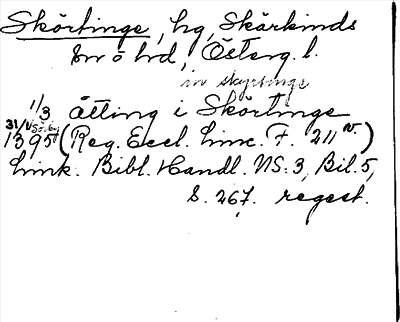 Skörtinge, hg, Skärkinds
sn o hd, Österg. l.
in skyrtinge
1/3 ätting i Skörtinge
31/1 1395 (Reg. Eccl. Linc. F. 211 v.)
Link. Bibl. Handl. NS: 3, Bil. 5,
S. 267. regest.